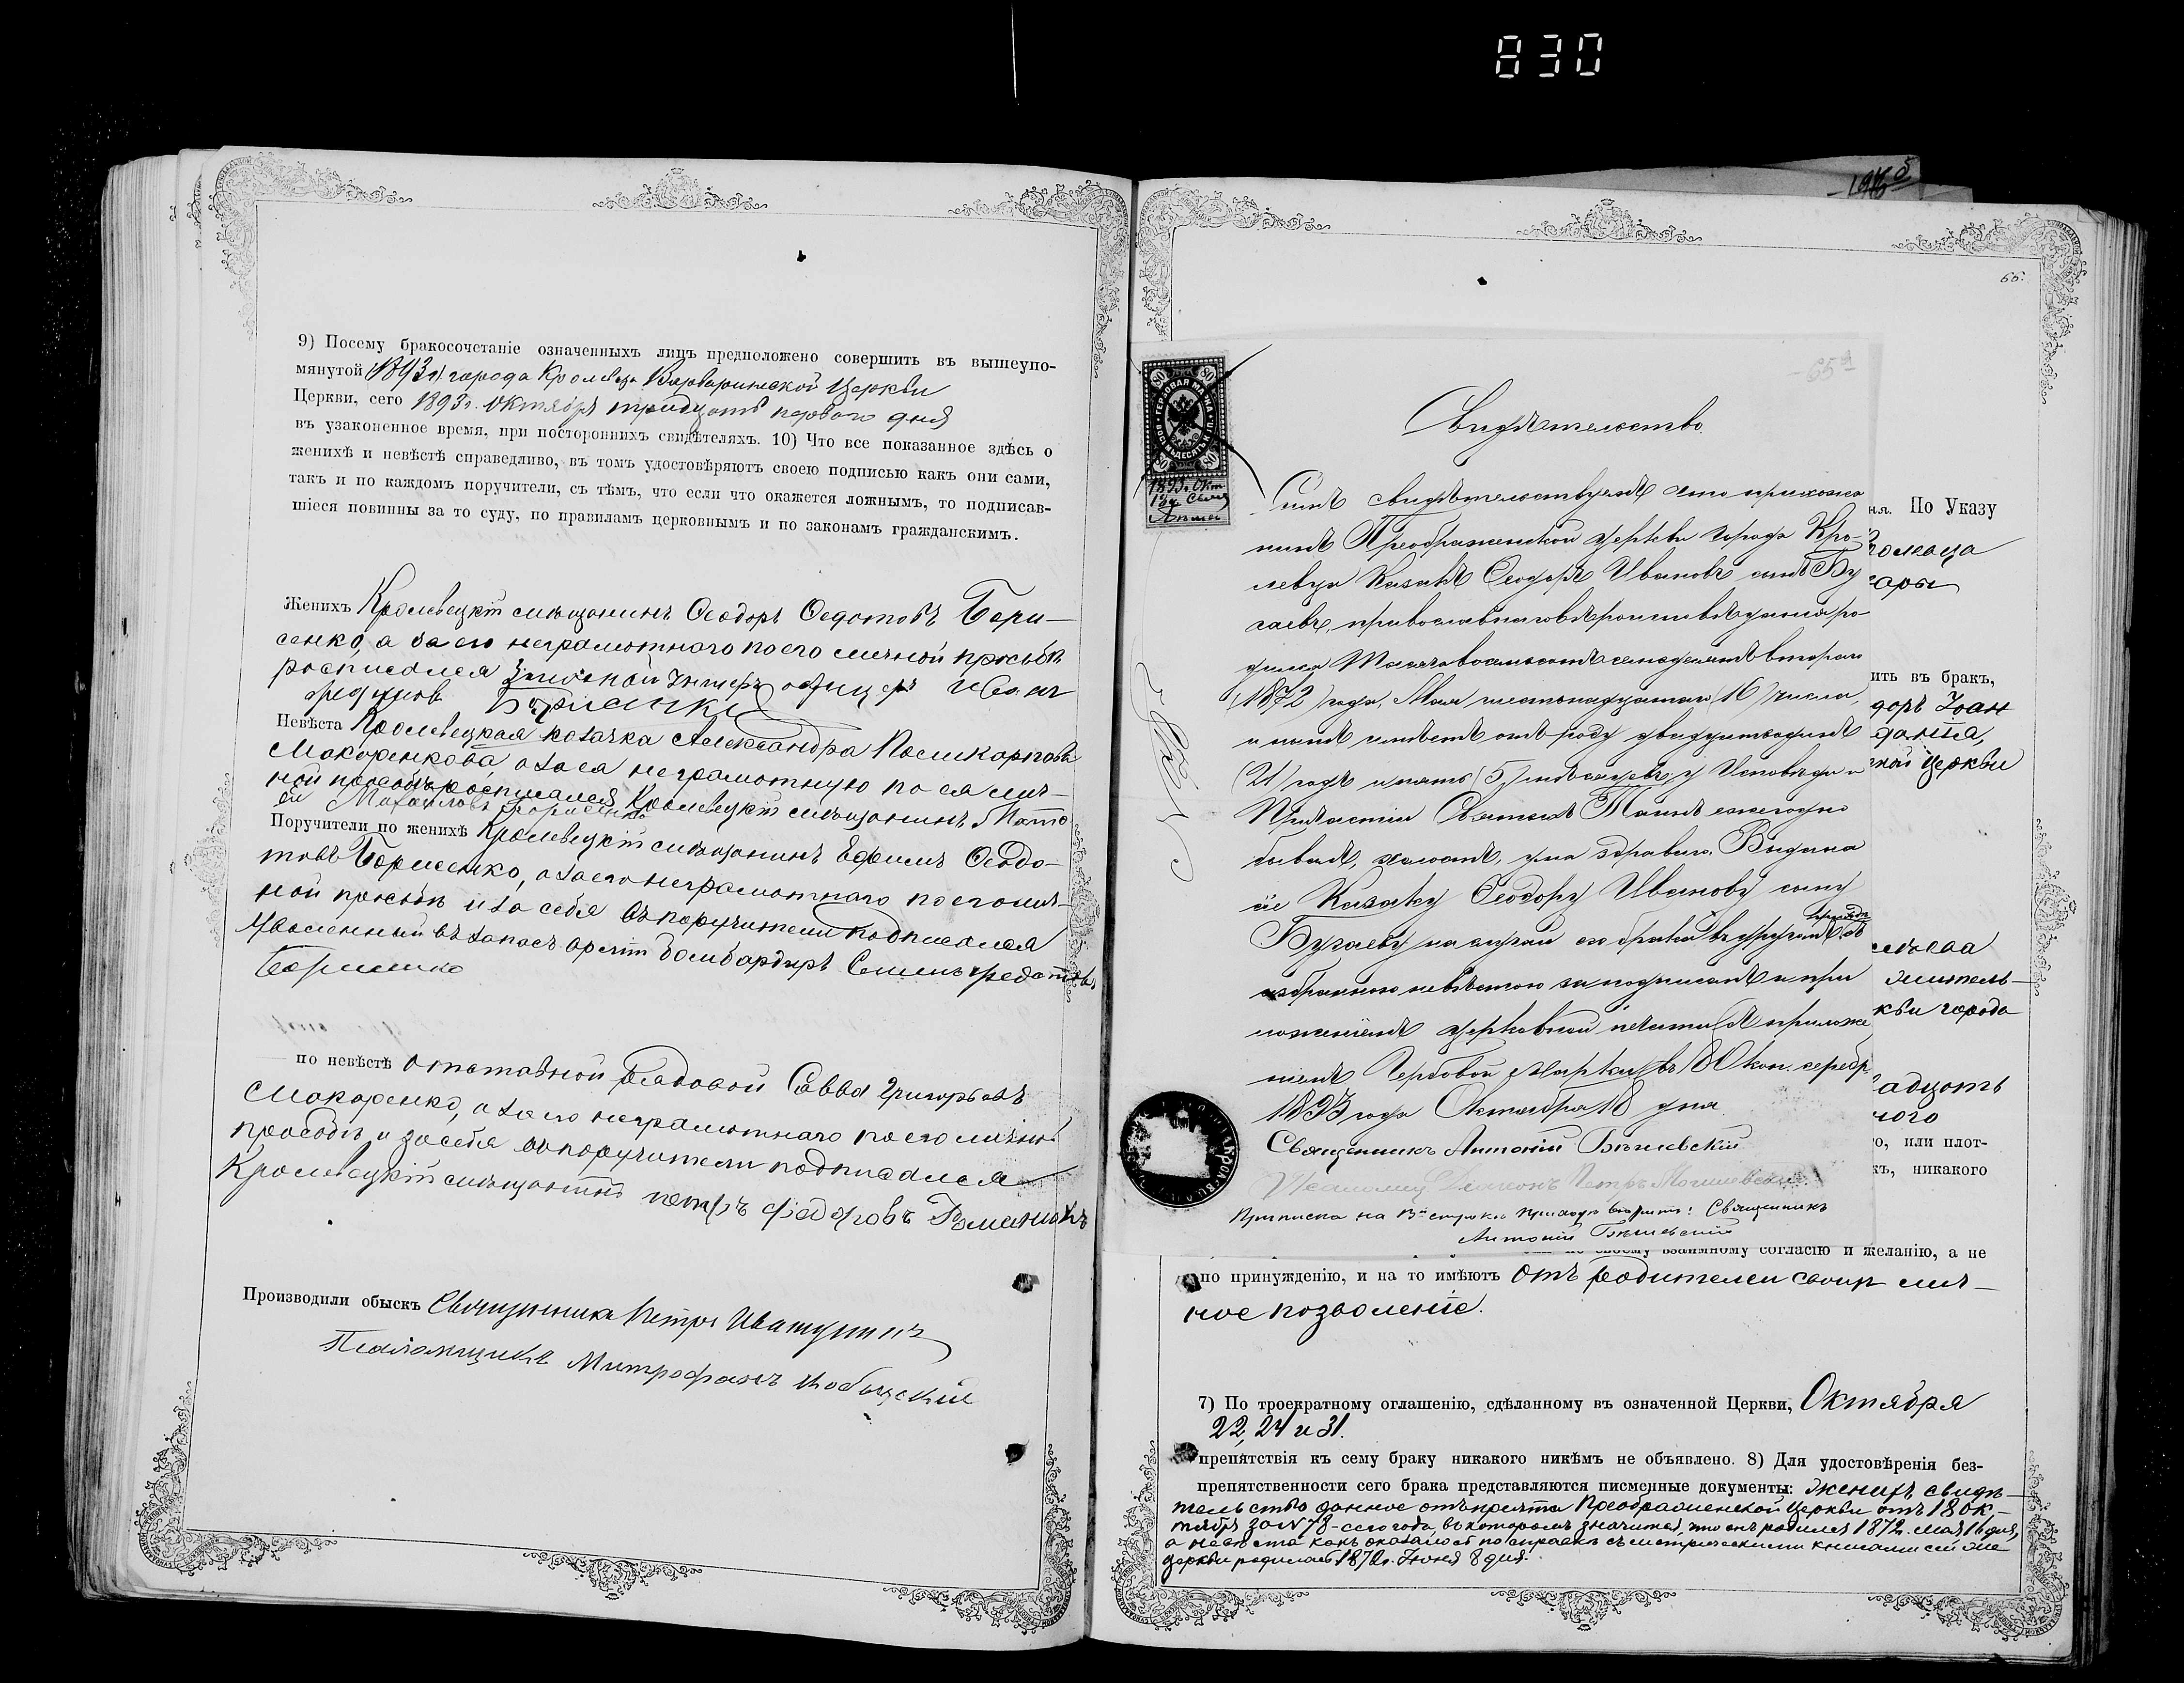 830
9) Посему бракосочетаніе означенныхъ лицъ предположено совершить въ вышеупо-
мянутой 1893 г. города Кролевца Варваринской Церкви
Церкви, сего 1893 г. Октября тридцать перваго дня
въ узаконенное время, при постороннихъ свидѣтеляхъ. 10) Что все показанное здѣсь о
женихѣ и невѣстѣ справедливо, въ томъ удостовѣряютъ своею подписью какъ они сами,
такъ и по каждомъ поручители, съ тѣмъ, что если что окажется ложнымъ, то подписав-
шіеся повинны за то суду, по правиламъ церковнымъ и по законамъ гражданскимъ.
Женихъ Кролевецкій мѣщанинъ Ѳеодоръ Ѳедотовъ Бори-
сенко, а за его неграмотнаго по его личной просьбѣ
росписался Запасной Унтеръ офицеръ Иванъ
Борисенко
Невѣста Кролевецкая козачка Александра Поликарпова
Макаренкова, а за ея неграмотную по ея лич-
ной просьбѣ росписался Кролевецкій мѣщанинъ Матѳ
ей Михайловъ Борисенко
Поручители по женихѣ Кролевецкій мѣщанинъ Ефимъ Ѳедо-
товъ Борисенко, а за его неграмотнаго по его лич-
ной просьбѣ и за себя въ поручители подписался
Уволенный въ запасъ арміи бомбардиръ Семенъ Федотовъ
Борисенко
по невѣстѣ отставной рядовой Савва Григорьевъ
Макаренко, а за его неграмотнаго по его личной
просьбѣ и за себя въ поручители подписался
Кролевецкій мѣщанинъ Петръ Федоровъ
Производили обыскъ Священникъ Петръ
Псаломщикъ Митрофанъ
66.
65
Свидѣтельство.
80 80
ГЕРБОВАЯ МАРКА
ВОСЕМЬДЕСЯТЪ
80 80
1893 г. Окт.
18 д.
Симъ свидѣтельствуемъ что прихожа
нинъ Преображенской церкви города Кро-
левца Казакъ Ѳеодоръ Ивановъ сынъ Бу
гаевъ, православнаго вѣроисповѣданія ро
дился Тысяча восемьсотъ семьдесятъ второго
(1872) года, Мая шестьнадцатаго (16) числа,
и нынѣ имѣетъ отъ роду двадцать одинъ
(21) годъ и пять (5) мѣсяцевъ, у Исповѣди и
Причастія Святыхъ Таинъ ежегодно
бывалъ, холостъ, ума здраваго. Выдана
сіе Казаку Ѳеодору Иванову сыну
Бугаеву на случай его брака въ другомъ приходѣ съ
избранною невѣстою за подписомъ и при
ложеніемъ церковной печати и приложе
ніемъ Гербовой Марки въ 80 коп. серебр.
1893 года Октября 18 дня.
Священникъ Антоній Бѣлневскій
Псаломщ. Діаконъ Петръ
Приписка на 13й строкѣ приходѣ вѣрить: Священникъ
Антоній Бѣлневскій
№ 78
ня. По Указу
ить въ бракъ,
доръ Іоан
ной церкви
житель-
кви города
адцать
о, или плот-
къ, никакого
своему взаимному согласію и желанію, а не
по принужденію, и на то имѣютъ отъ родителей своихъ лич-
ное позволеніе.
7) По троекратному оглашенію, сдѣланному въ означенной Церкви, Октября
22, 24 и 31.
препятствія къ сему браку никакого никѣмъ не объявлено. 8) Для удостовѣренія без-
препятственности сего брака представляются писменные документы: Женихъ свидѣ-
тельство данное отъ причта Преображенской Церкви отъ 18 Ок-
тября за № 78-сего года, въ которомъ значится, что онъ родился 1872. мая 16 дня,
а невѣста какъ оказалось по справкѣ съ метрическими книгами сей же
церкви родилась 1872 г. Іюня 8 дня.